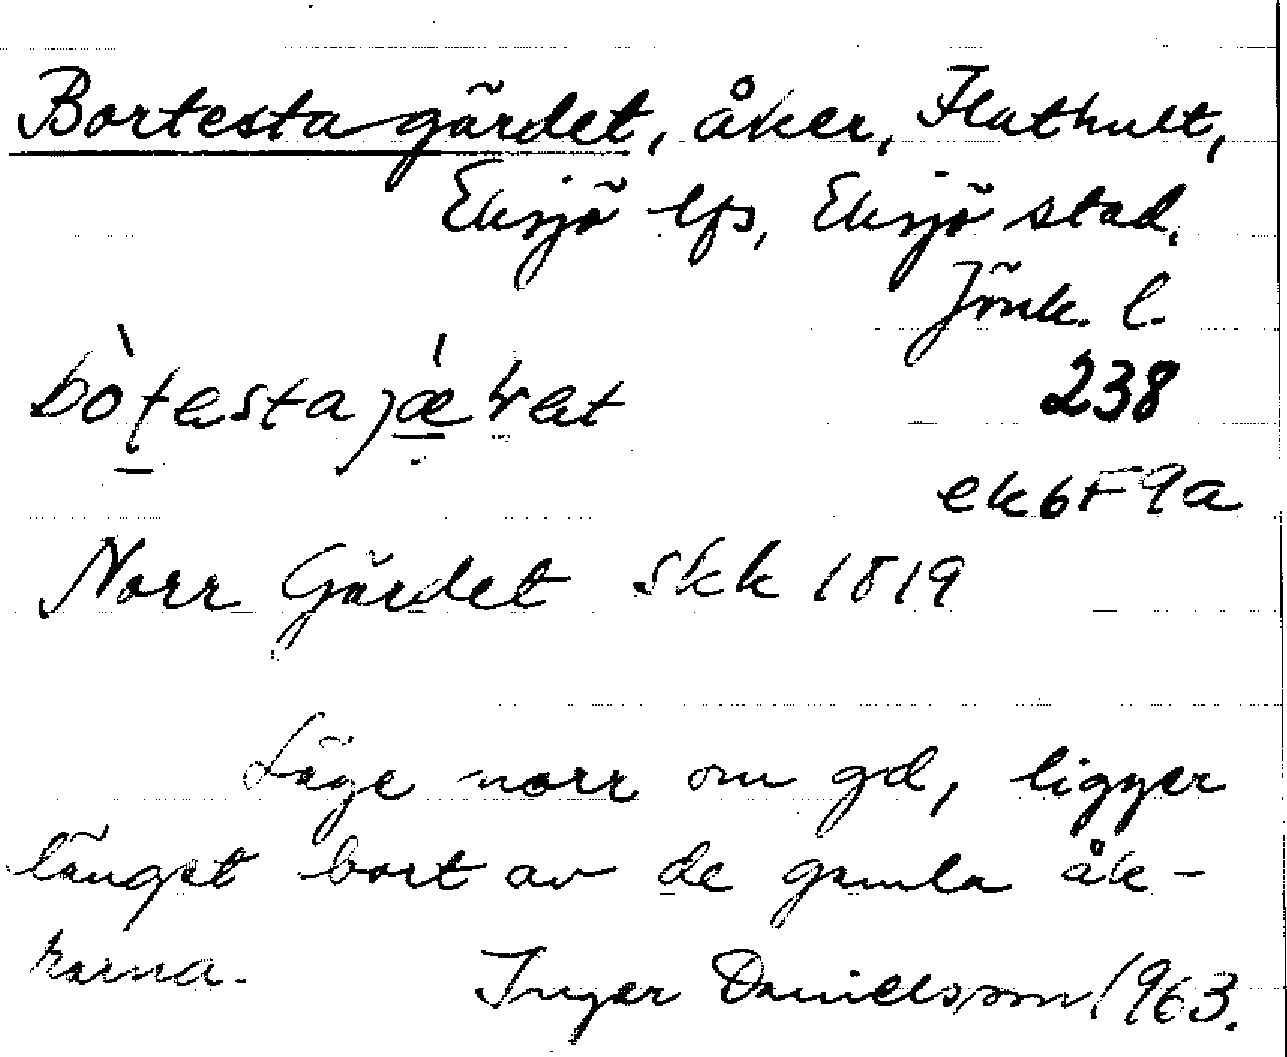 Bortesta gärdet, åker, Flathult,
Eksjö lfs, Eksjö stad.
Jönk. l.
238
ek6F9a
Norr Gärdet skk 1819
Läge norr om gd, ligger
längst bort av de gamla åk-
rarna.
Inger Danielsson 1963.